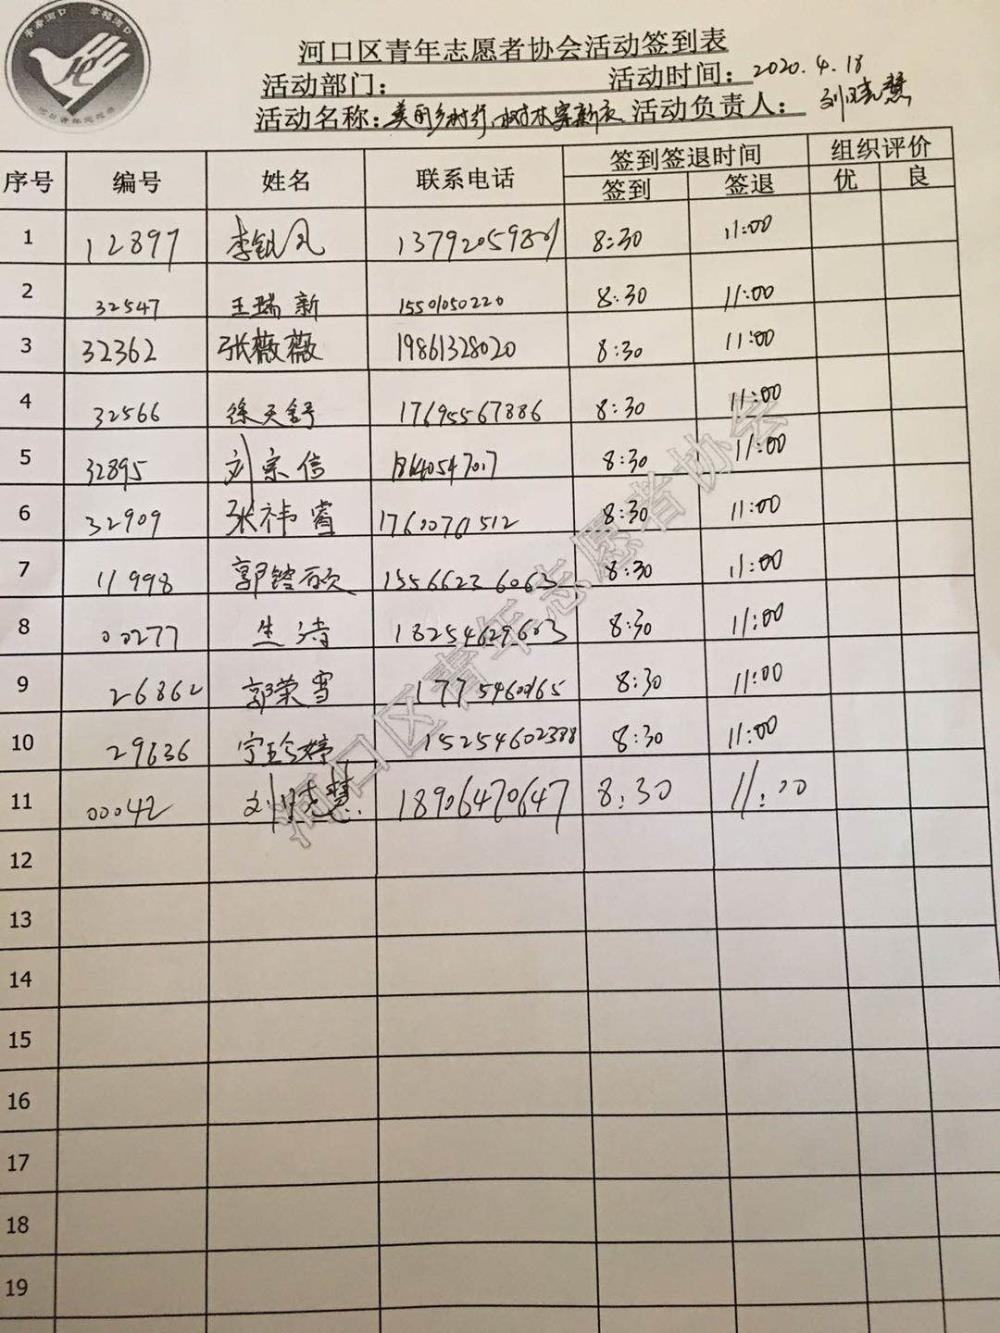 河口区青年志愿者协会活动签到表
活动部门： 活动时间：2020.4.18
活动名称：美丽乡村行，树木穿新衣 活动负责人：刘晓慧
序号 编号 姓名 联系电话 签到签退时间 组织评价
签到 签退 优 良
1 12897 李银凤 13792059801 8:30 11:00
2 32547 王瑞新 15501050220 8:30 11:00
3 32362 张薇薇 19861328020 8:30 11:00
4 32566 徐天舒 17695567886 8:30 11:00
5 32895 刘宗信 8:30 11:00
6 32909 张祎睿 8:30 11:00
7 11998 郭铠硕 15566236063 8:30 11:00
8 00277 生涛 18254629603 8:30 11:00
9 26862 郭荣雪 8:30 11:00
10 29636 宁珍婷 15254602388 8:30 11:00
11 00042 刘晓慧 18906470647 8:30 11:00
12
13
14
15
16
17
18
19
河口区青年志愿者协会